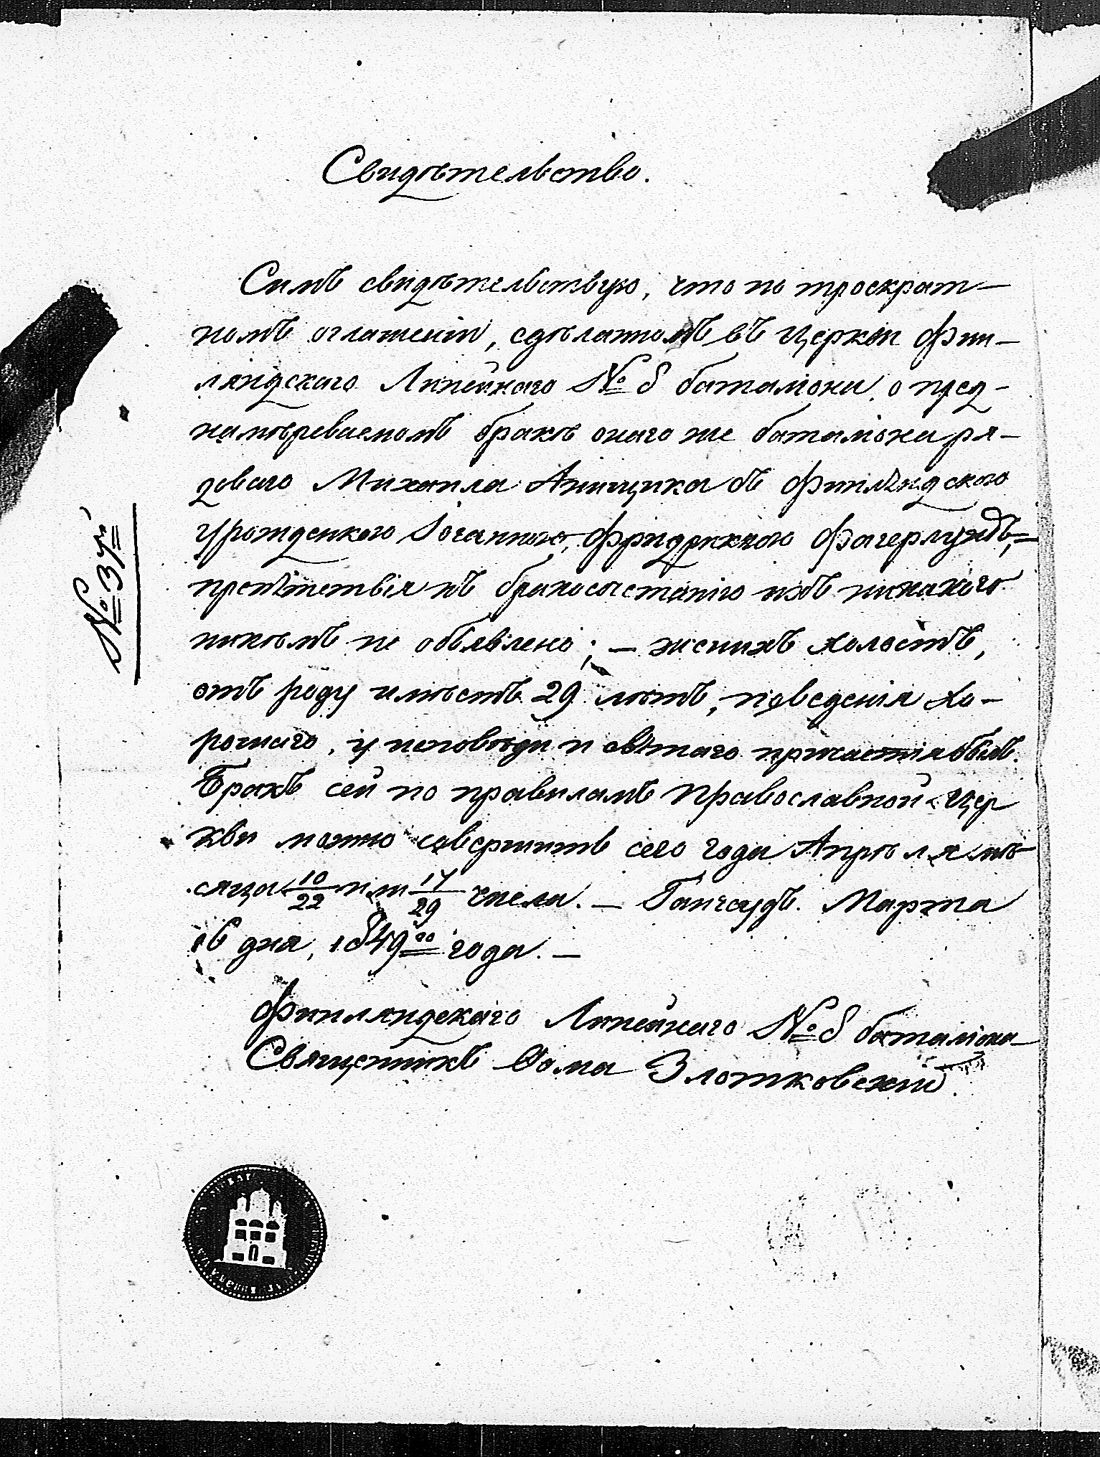 Свидѣтельство.
Симъ свидѣтельствую, что по троекрат-
номъ оглашеніи, сдѣланномъ въ Церкви Фин-
ляндскаго Линейнаго № 8 баталіона, о пред-
намѣреваемомъ бракѣ онаго же баталіона ря-
доваго Михаила съ Финляндскою
урожденкою Іоганною, Фридрикою Фагерлундъ,
препятствія къ бракосочетанію ихъ никакого
никѣмъ не объявлено; — женихъ холостъ,
отъ роду имѣетъ 29 лѣтъ, поведенія хо-
рошаго, у исповѣди и святаго причастія былъ.
Бракъ сей по правиламъ Православной Цер
кви можно совершить сего года Апрѣля мѣ
сяца 10/22 или 17/29 числа. — Гангеудъ. Марта
16 дня, 1849го года. —
Финляндскаго Линейнаго № 8 баталіона
Священникъ Ѳома Злотковскій.
№ 37й